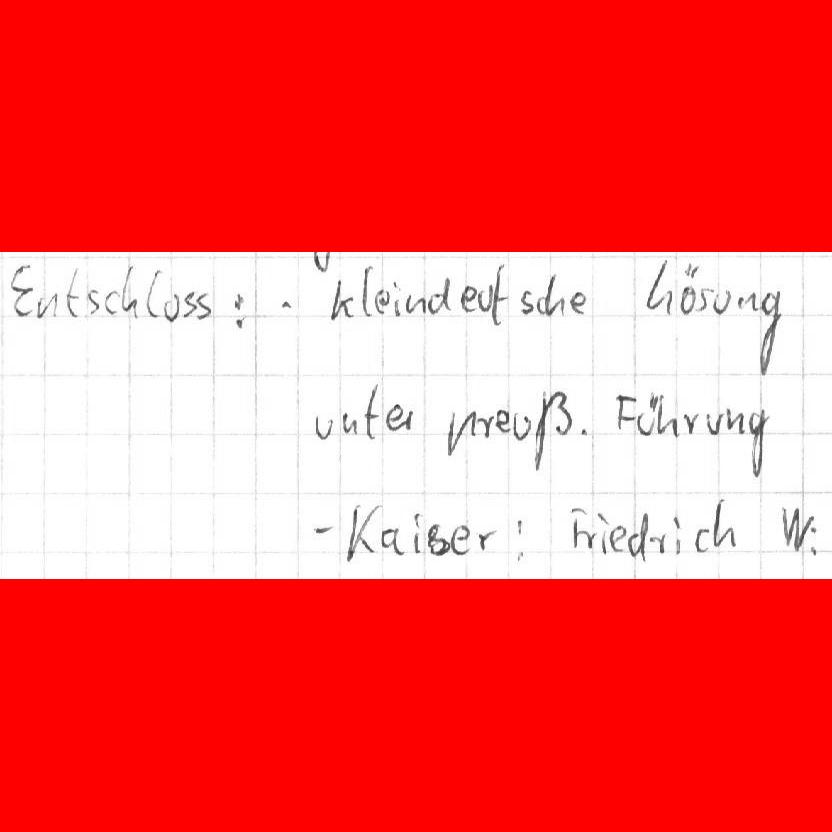 Entschluss: - kleindeutsche Lösung
unter preuß. Führung
- Kaiser: Friedrich W.